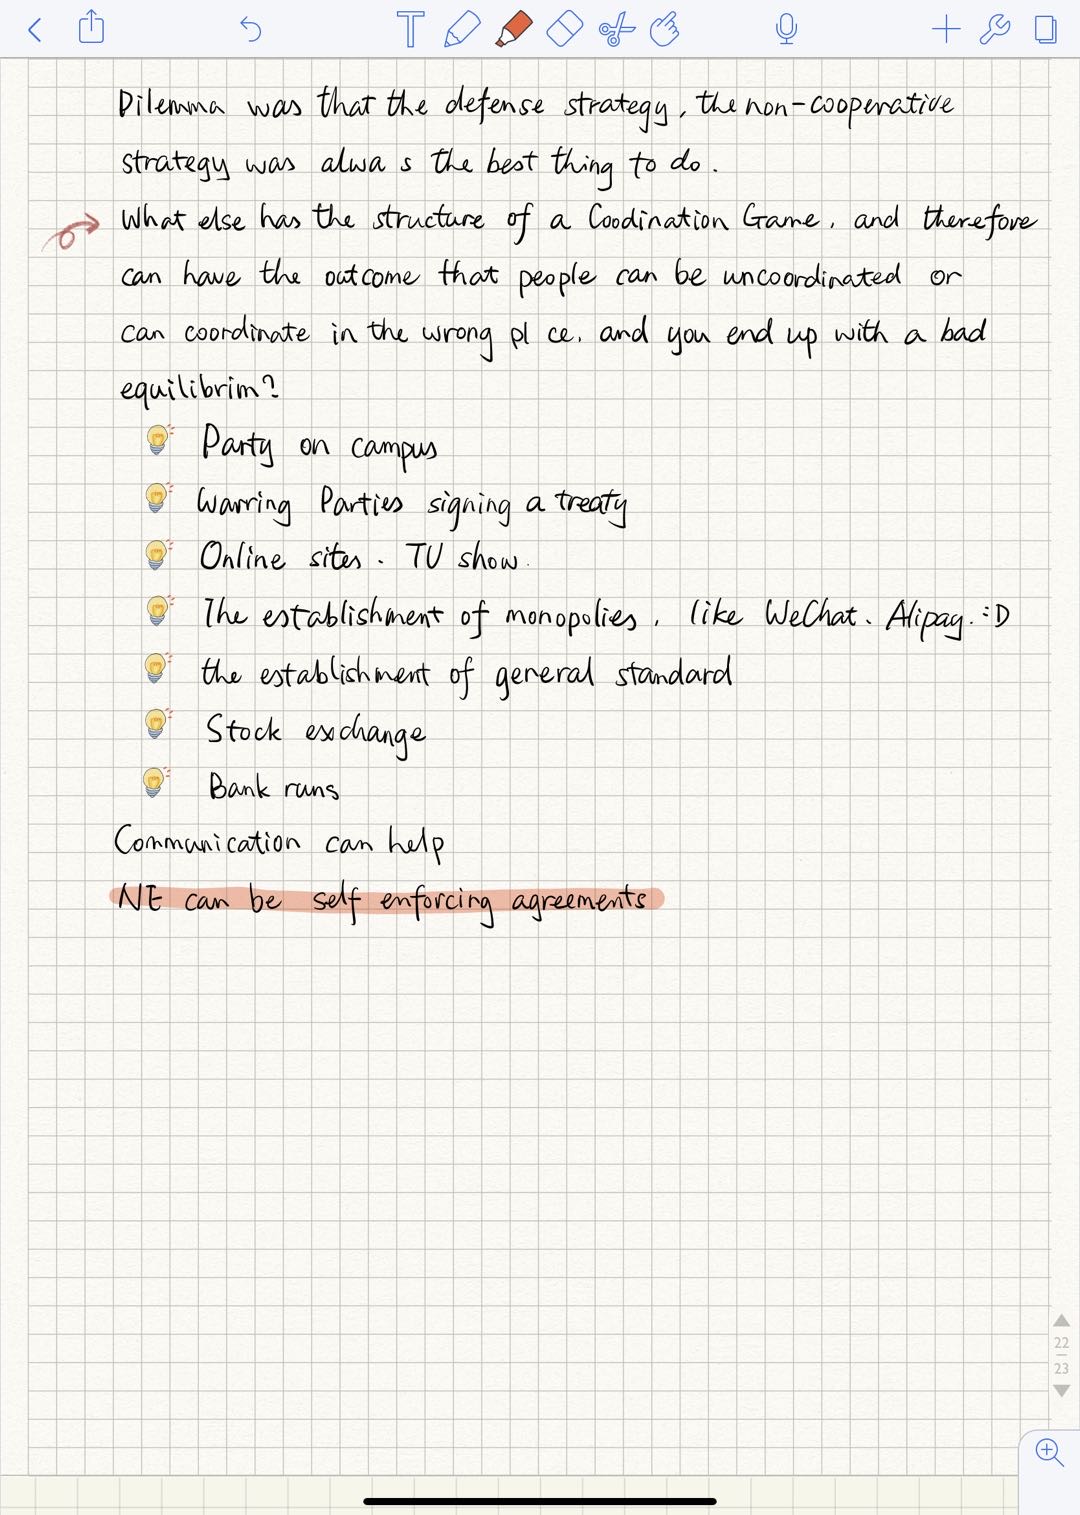 Dilemma was that the defense strategy, the non-cooperative
strategy was alwa s the best thing to do.
What else has the structure of a Coodination Game, and therefore
can have the outcome that people can be uncoordinated or
can coordinate in the wrong pl ce, and you end up with a bad
equilibrim?
Party on campus
Warring Parties signing a treaty
Online sites. TV show.
The establishment of monopolies, like WeChat. Alipay. :D
the establishment of general standard
Stock exchange
Bank runs
Communication can help
NE can be self enforcing agreements
22
23